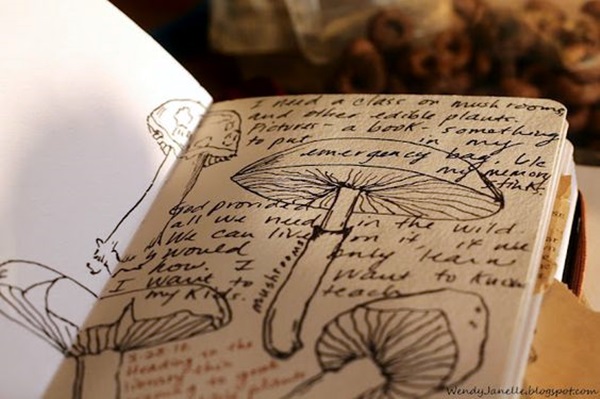 I need a class on mushrooms
and other edible plants.
Pictures - a book - something
to put in my
emergency bag, b/c
my memory
stinks.
God provided
all we need in the wild.
We can live on it, if we
would only learn
how. I want to know
I want to teach
my kids.
mushrooms
Heading to the
library this
WendyJanelle.blogspot.com